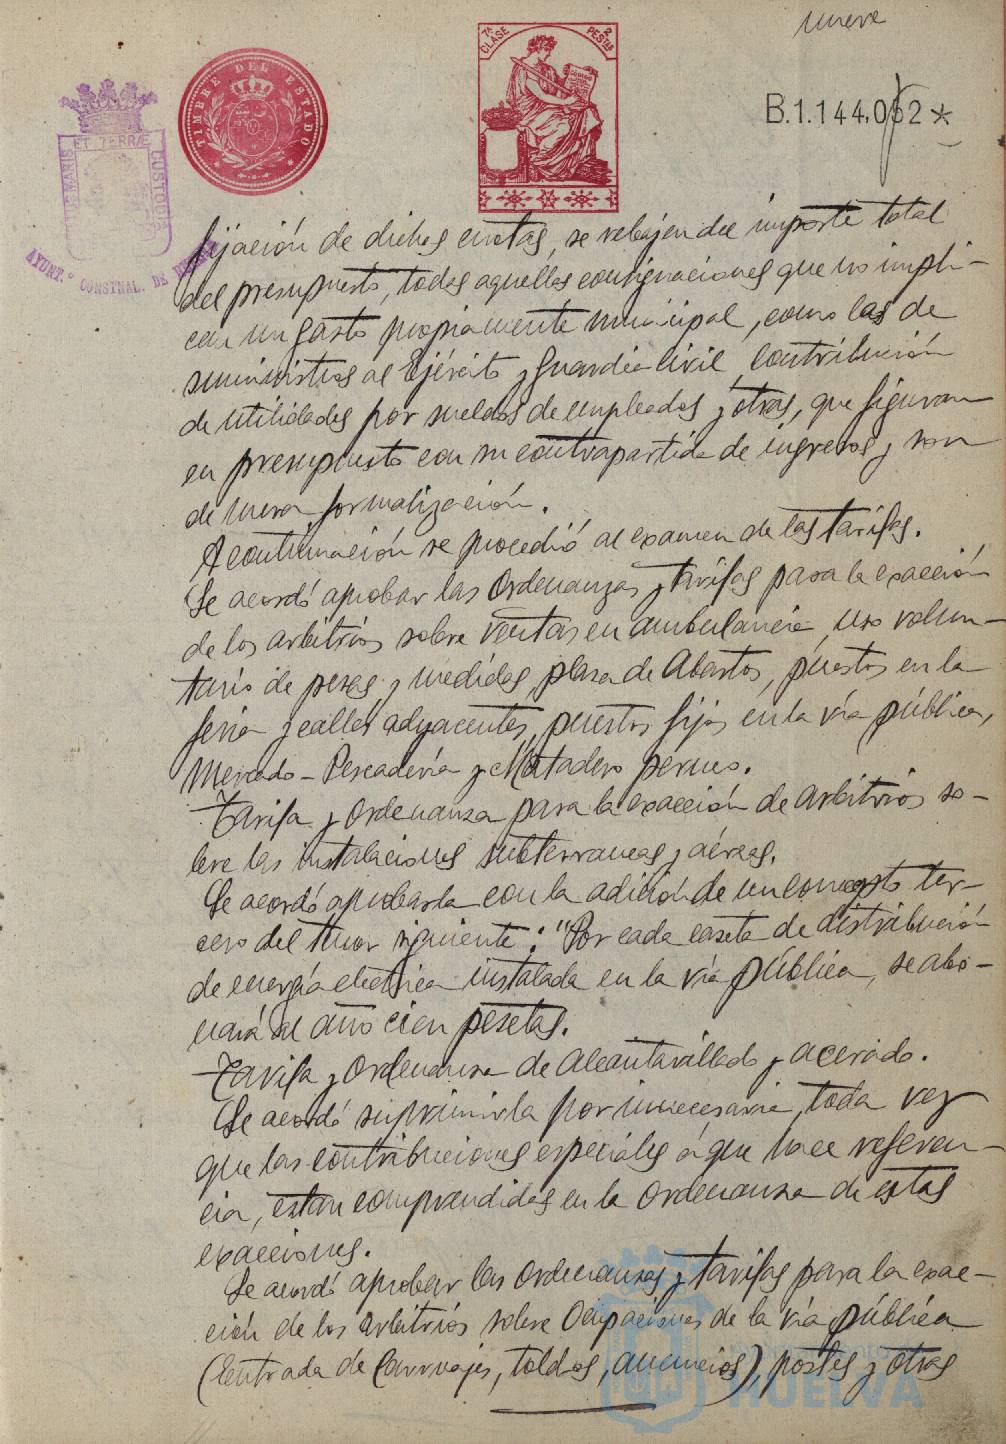 nueve
7ª CLASE 2 PESTAS
TIMBRE DEL ESTADO
B.1.144,052*
ET TERRÆ CUSTODIA
AYUNT.º CONSTNAL. DE
fijación de dichas cuotas, se rebajen del importe total
del presupuesto, todas aquellas consignaciones que no impli-
can un gasto propiamente municipal, como las de
suministros al Ejército y Guardia Civil, contribución
de utilidades por sueldos de empleados y otras, que figuran
en presupuesto con su contrapartida de ingresos y son
de mera formalización.
A continuación se procedió al examen de las tarifas.
Se acordó aprobar las Ordenanzas y tarifas para la exacción
de los arbitrios sobre ventas en ambulancia, uso volun-
tario de pesas y medidas, plaza de Abastos, puestos en la
feria y calles adyacentes, puestos fijos en la vía pública,
Mercado-Pescadería y Matadero
Tarifa y Ordenanza para la exacción de arbitrios so-
bre las instalaciones subterraneas y aéreas.
Se acordó aprobarla con la adición de un concepto ter-
cero del tenor siguiente: "Por cada caseta de distribución
de energía electrica instalada en la vía pública, se abo-
nará al año cien pesetas.
Tarifa y Ordenanza de Alcantarillado y acerado.
Se acordó suprimirla por innecesaria, toda vez
que las contribuciones especiales á que hace referen-
cia, estan comprendidas en la Ordenanza de estas
exacciones.
Se acordó aprobar las Ordenanzas y tarifas para la exac-
ción de los arbitrios sobre Ocupaciones de la vía pública
(Entrada de Carruajes, toldos, anuncios), postes y otras
HUELVA